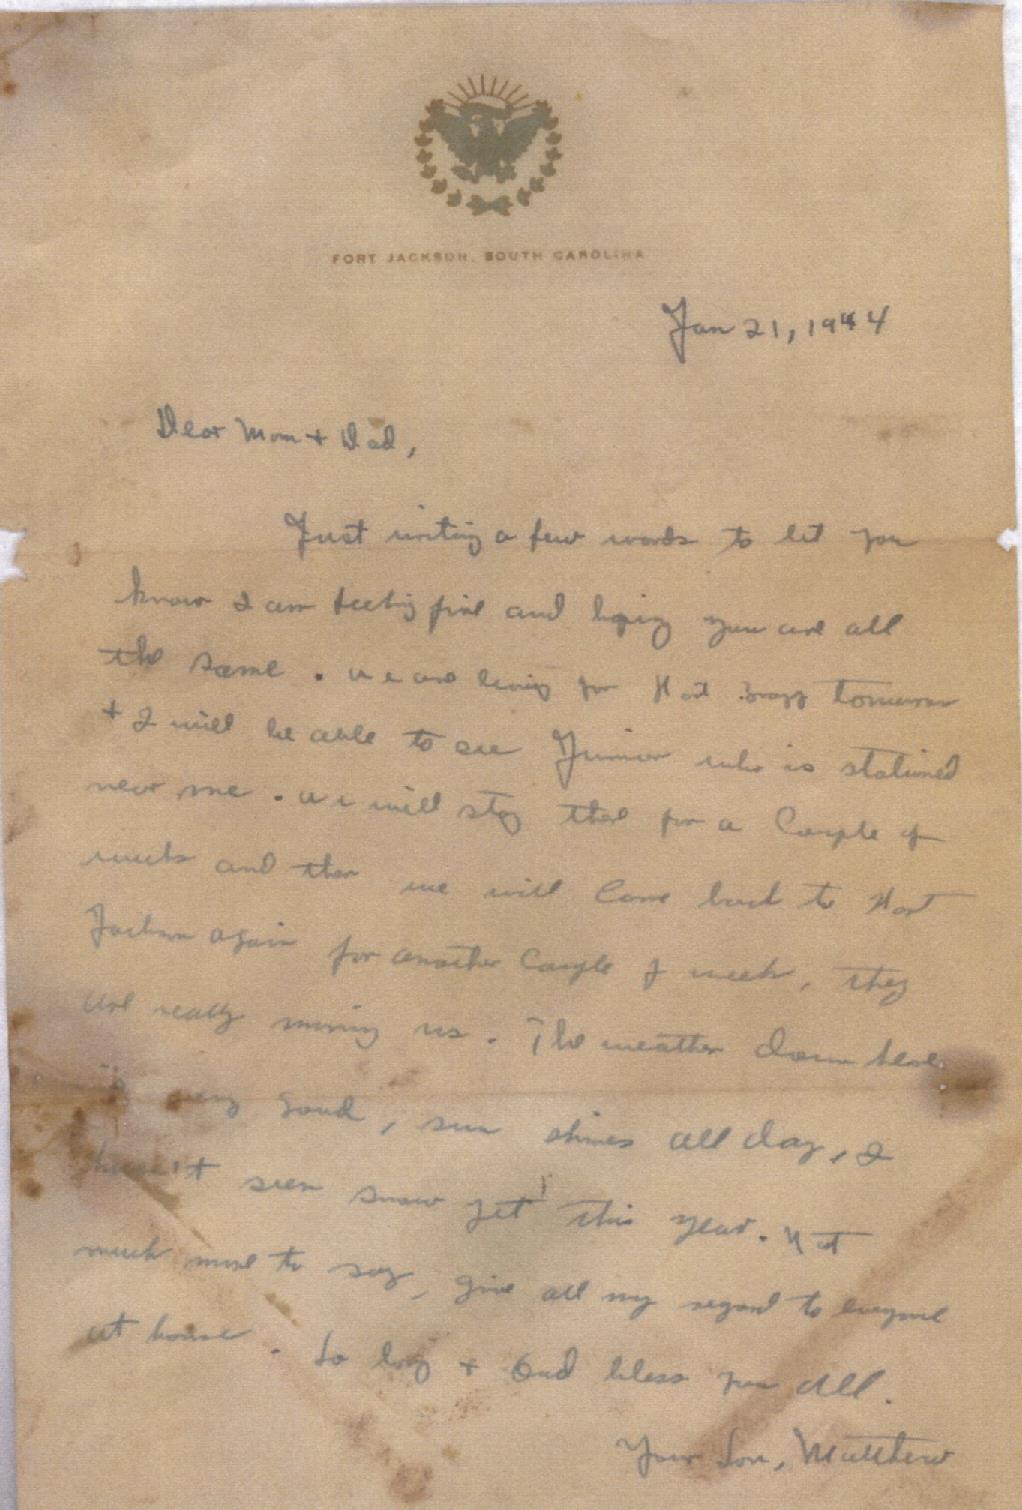 FORT JACKSON, SOUTH CAROLINA
Jan 21, 1944
Dear Mom + Dad,
Just writing a few words to let you
know I am feeling fine and hoping you are all
the same. We are leaving for Fort Bragg tomorrow
+ I will be able to see Junior who is stationed
near me. We will stay there for a Couple of
weeks and then we will Come back to Fort
Jackson again for another Couple of weeks, they
are really moving us. The weather down here
is very good, sun shines all day, I
haven't seen snow yet this year. Not
much more to say, give all my regard to everyone
at home. So long + God bless you all.
Your Son, Matthew